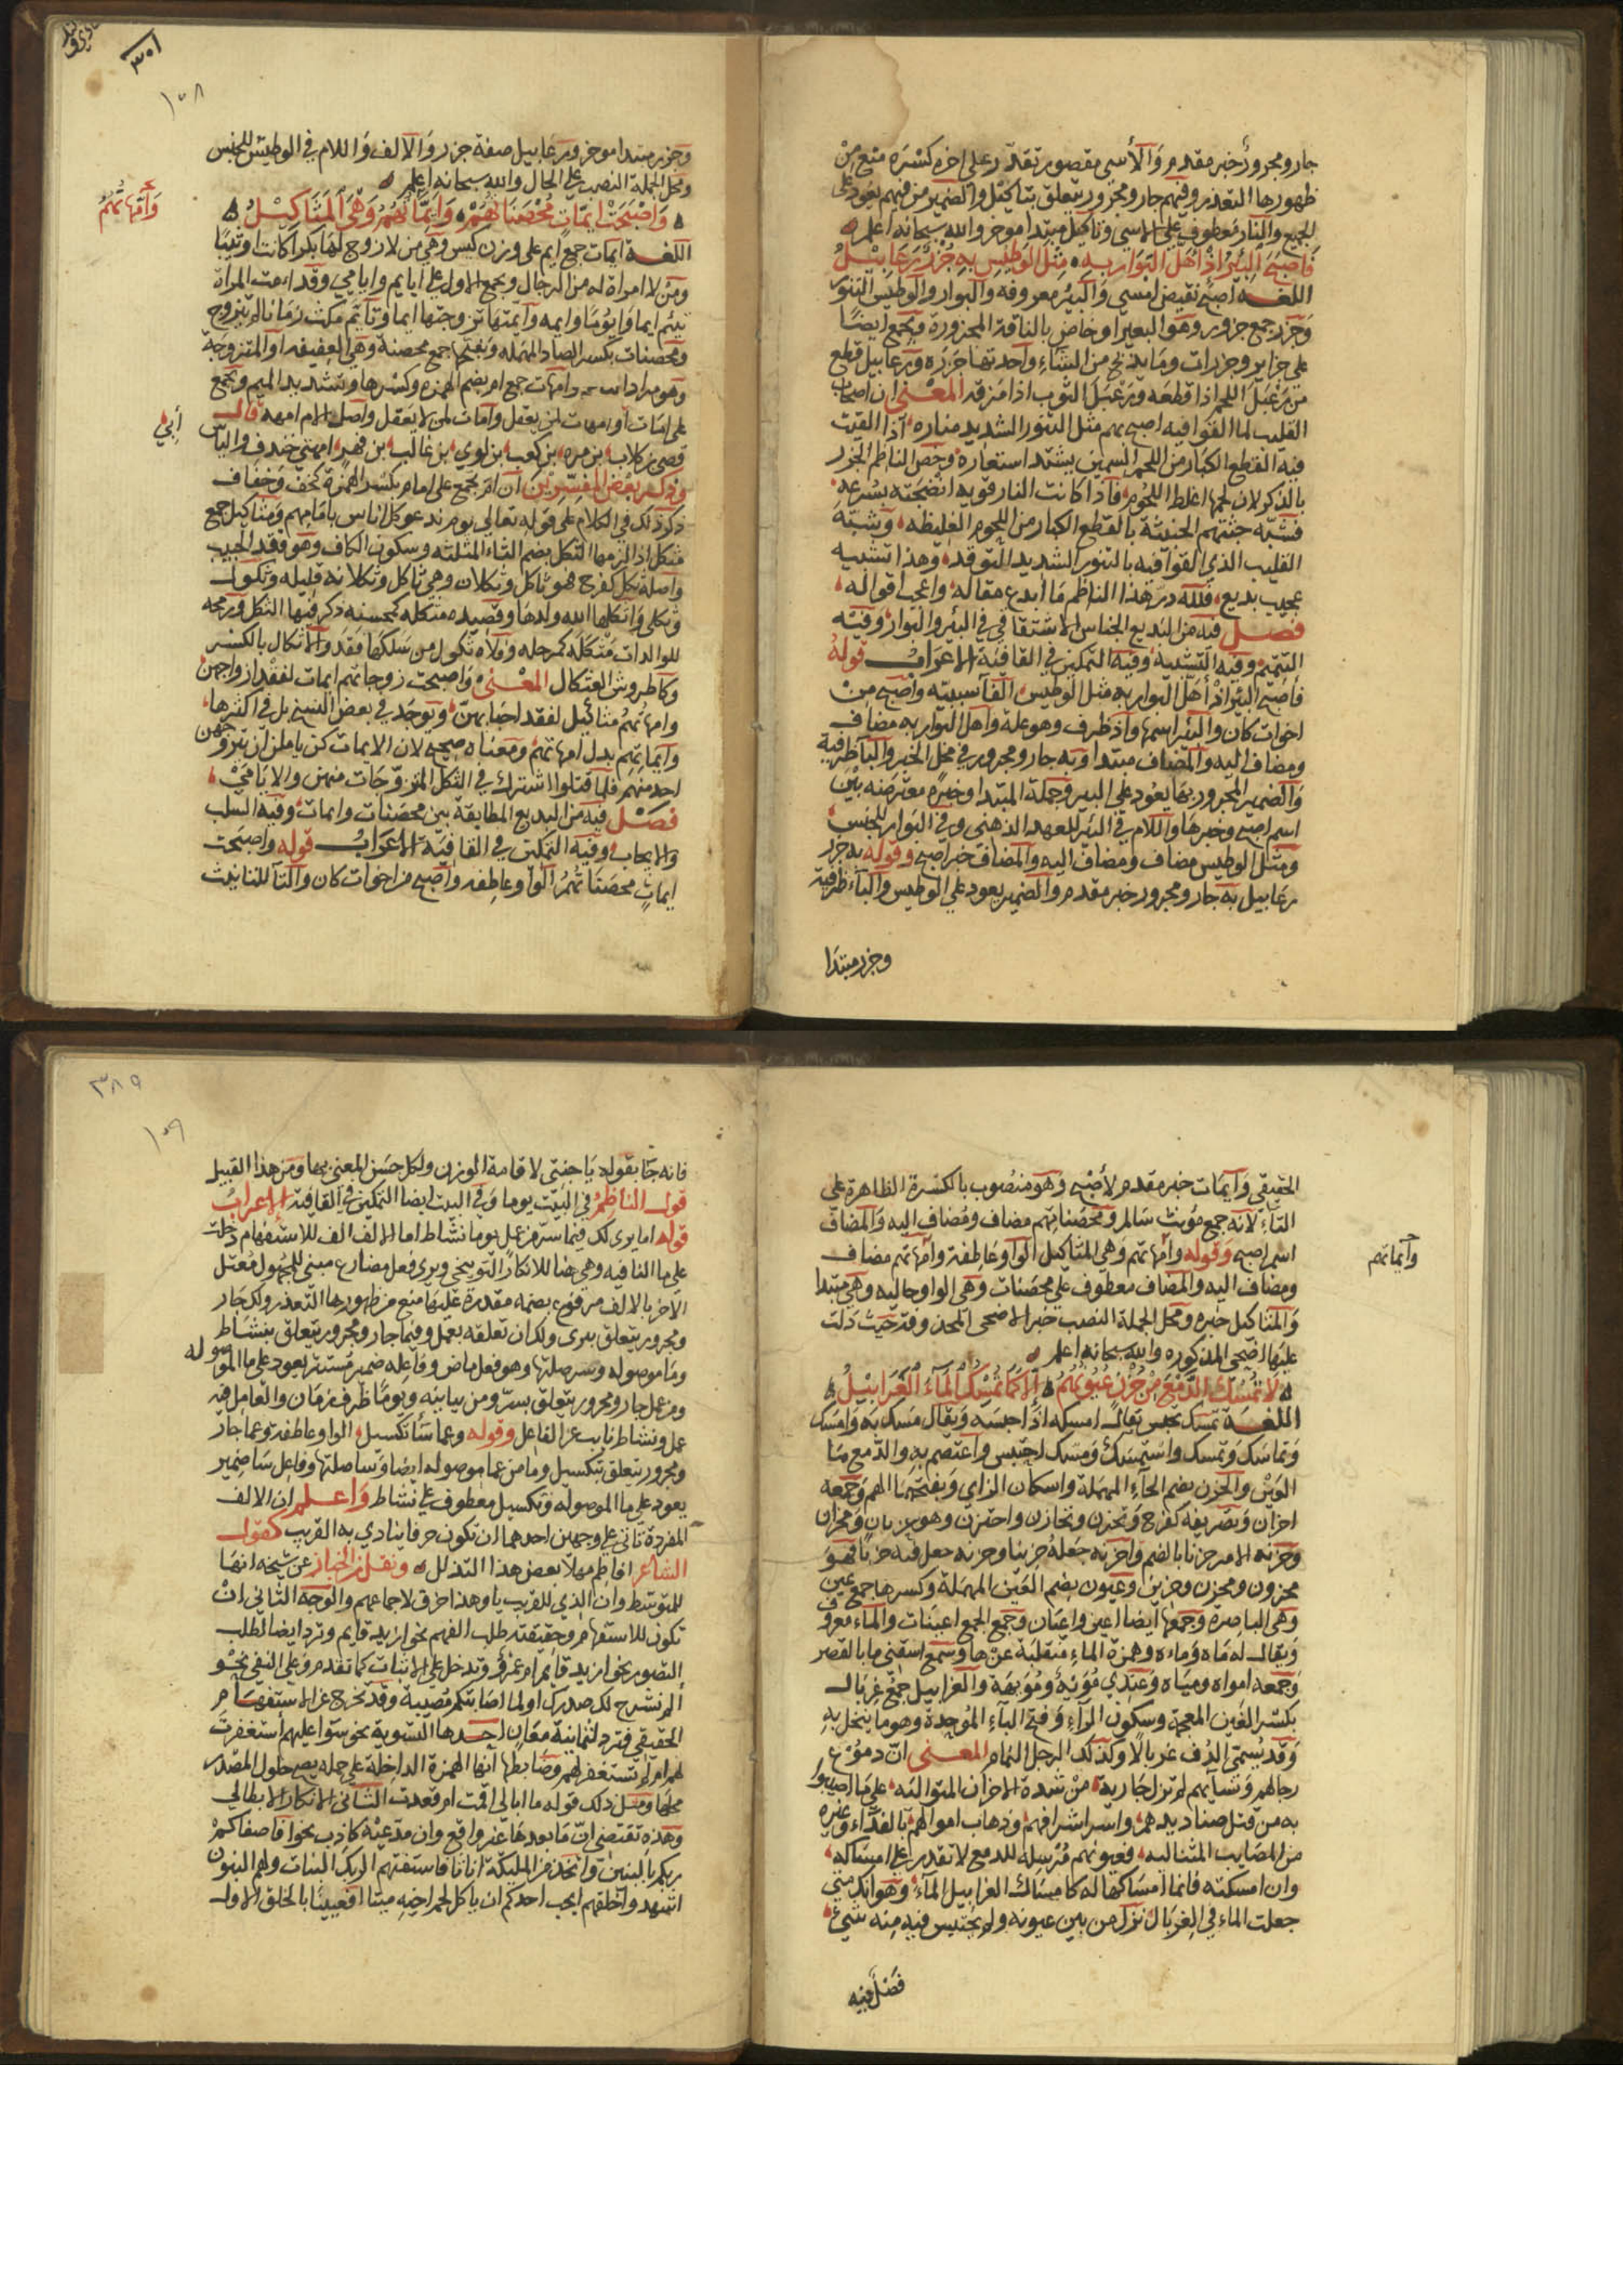 جار ومجرور خبر مقدم والأسى مقصور تقدر على اخره كسره منع من
ظهورها التعذر وفيهم جار ومجرور يتعلق بتأكيل والضمير من فيهم يعود على
الجميع والنار معطوف على الاسى وتأكيل مبتدا موخر والله سبحانه اعلم
فاصبح البئر اذ اهل البوار به مثل الوطيس به جزر رعابيل
اللغه اصبح نقيض امسى والبئر معروفه والبوار والوطيس التنور
وجزر جمع جزور وهو البعير او خاص بالناقة المجزورة ويجمع ايضا
على جزاير وجزرات وما يذبح من الشاء واحدتها جزره ورعابيل قطع
من رعبل اللحم اذا قطعه ورعبل الثوب اذا مزقه المعنى ان اصحاب
القليب لما القوا فيه اصبح بهم مثل التنور الشديد مناره اذا القيت
فيه القطع الكبار من اللحم السمين يشتد استعاره وخص الناظم الجزر
بالذكر لان لحمها اغلظ اللحوم فاذا كانت النار قويه انضجته بسرعه
فشبه جثتهم الخبيثة بالقطع الكبار من اللحوم الغليظه وشبه
القليب الذي القوا فيه بالتنور الشديد التوقد وهذا تشبيه
عجيب بديع فلله در هذا الناظم ما ابدع مقاله واعجب اقواله
فصل فيه من البديع الجناس الاشتقاقي في البئر والبوار وفيه
التتميم وفيه التشبيه وفيه التمكين في القافية الاعراب قوله
فاصبح البئر اذ اهل البوار به مثل الوطيس الفا سببيه واصبح من
اخوات كان والبئر اسمها واذ ظرف وهو علة واهل البوار به مضاف
ومضاف اليه والمضاف مبتدا وبه جار ومجرور في محل الخبر والبا ظرفية
والضمير المجرور بها يعود على البير وجملة المبتدا وخبره معترضه بين
اسم اصبح وخبرها واللام في البئر للعهد الذهني وفي البوار للجنس
ومثل الوطيس مضاف ومضاف اليه والمضاف خبر اصبح وقوله به جزر
رعابيل به جار ومجرور خبر مقدم والضمير يعود على الوطيس والباء ظرفية
وجزر مبتدا
٣٠١
١٥٨
وجزر مبتدا موخر ورعابيل صفة جزر والالف واللام في الوطيس للجنس
ومحل الجملة النصب على الحال والله سبحانه اعلم
واصبحت ايمات محصناتهم وايماتهم وهي المثاكيل
وأمهاتهم
اللغه ايمات جمع ايم على وزن كيس وهي من لا زوج لها بكرا كانت او ثيبا
ومن لا امراة له من الرجال ويجمع الاول على ايايم وايامي وقد امت المراة
تيئم ايما وايوما وايمه وأيمتها تزوجتها ايما وتأيم مكث زمانا لم يتزوج
ومحصنات بكسر الصاد المهمله وبفتحها جمع محصنة وهي العفيفه او المتزوجة
وهو مراد وامهات جمع ام بضم الهمزه وكسرها وتشديد الميم وتجمع
على امات او امهات لمن يعقل وامات لمن لا يعقل واصل الام امهه قالــ
قصي بن كلاب بن مره بن كعب بن لوي بن غالب بن فهر امهتي خندف والياس
أبي
وذكر بعض المفسرين ان ام تجمع على امام بكسر الهمزة كخف وخفاف
ذكر ذلك في الكلام على قوله تعالى يوم ندعو كل اناس بامامهم ومثاكيل جمع
مثكل اذا لزمها الثكل بضم الثاء المثلثه وسكون الكاف وهو فقد الحبيب
واصله ثكل كفرح فهو ثاكل وثكلان وهي ثاكل وثكلانه قليله وثكول
وثكلى واثكلها الله ولدها وقصيده مثكله كمحسنه ذكر فيها الثكل ورمحه
للوالدات مثكلة كمرحله وفلاه ثكول من سلكها فقد والاثكال بالكسر
وكاطروش العثكال المعنى واصبحت زوجاتهم ايمات لفقد ازواجهن
وامهاتهم مثاكيل لفقد احبابهن ويوجد في بعض النسخ بل في اكثرها
وايماتهم بدل امهاتهم ومعناه صحيح لان الايمات كن ياملن ان يتزوجهن
احد منهم فلما قتلوا اشترك في الثكل المتزوجات منهن والايامى
فصل فيه من البديع المطابقة بين محصنات وايمات وفيه السلب
والايجاب وفيه التمكين في القافية الاعراب قوله واصبحت
ايمات محصناتهم الواو عاطفه واصبح من اخوات كان والتا للتانيث
الحقيقي وايمات خبر مقدم لأصبح وهو منصوب بالكسرة الظاهرة على
التاء لانه جمع مؤنث سالم ومحصناتهم مضاف ومضاف اليه والمضاف
اسم اصبح وقوله وامهاتهم وهي المثاكيل الواو عاطفة وامهاتهم مضاف
وأيماتهم
ومضاف اليه والمضاف معطوف على محصنات وهي الواو حاليه وهي مبتدا
والمثاكيل خبره ومحل الجملة النصب خبر الاصحى المحذوفة حيث دلت
عليها اضحى المذكوره والله سبحانه اعلم
لا تمسك الدمع من حزن عيونهم الا كما تمسك الماء الغرابيل
اللغة تمسك تحبس يقالــ امسكه اذا حبسه ويقال مسك به وامسك
وتماسك وتمسك واستمسك ومسك احتبس واعتصم به والدمع ما
العين والحزن بضم الحاء المهملة واسكان الزاي وبفتحهما الهم وجمعه
احزان وتصريفه كفرح وتحزن وتحازن واحتزن وهو حزنان ومحزان
وحزنه الامر حزنا بالضم واحزنه جعله حزينا وحزنه جعل فيه حزنا فهو
محزون ومحزن وحزين وعيون بضم العين المهملة وكسرها جمع عين
وهي الباصره وجمعها ايضا اعين واعيان وجمع الجمع اعينات والماء معروف
ويقالــ له ماه وماءه وهمزة الماء منقلبة عن ها وسمع اسقني ما بالقصر
وجمعه امواه ومياه وعندي مويه ومويهة والغرابيل جمع غربالــ
بكسر الغين المعجمة وسكون الراء وفتح الباء الموحدة وهو ما ينخل به
وقد يسمى الدف غربالا وكذلك الرجل النمام المعنى ان دموع
رجالهم ونسائهم لم تزل جارية من شدة الاحزان المتوالية على ما اصيبوا
به من قتل صناديدهم واسر اشرافهم وذهاب اموالهم بالفداء وغيره
من المصايب المتتاليه فعيونهم مرسله للدمع لا تقدر على امساكه
وان امسكته فانما امساكها له كامساك الغرابيل الماء وهو انك متى
جعلت الماء في الغربال نزل من بين عيونه ولم يحتبس فيه منه شيء
فصل فيه
٣٨٩
١٥٩
فانه جا بقوله يا جنتي لاقامة الوزن ولكل حسن المعنى بها ومن هذا القبيل
قول الناظم في البيت يوما وفي البيت ايضا التمكين في القافية الاعراب
قوله اما يرى لك فيما سر من عمل يوما نشاط اما الالف الف للاستفهام دخلت
على ما النافيه وهي هنا للانكار التوبيخي ويرى فعل مضارع مبني للمجهول معتل
الاخر بالالف مرفوع بضمه مقدرة عليها منع من ظهورها التعذر ولك جار
ومجرور يتعلق بيرى ولك ان تعلقه بعمل وفيما جار ومجرور يتعلق بنشاط
وما موصوله وسر صلتها وهو فعل ماض وفاعله ضمير مستتر يعود على ما الموصوله
ومن عمل جار ومجرور يتعلق بسر ومن بيانيه ويوما ظرف زمان والعامل فيه
عمل ونشاط نايب عن الفاعل وقوله وعما سأ تكسيل الواو عاطفة وعما جار
ومجرور يتعلق بتكسيل وما من عما موصوله ايضا وسا صلتها وفاعل سا ضمير
يعود على ما الموصوله وتكسيل معطوف على نشاط واعلم ان الالف
المفردة تاتي على وجهين احدهما ان تكون حرفا ينادي به القريب كقولــ
الشاعر افاطم مهلا بعض هذا التذلل ونقل ابن الخباز عن شيخه انها
للمتوسط وان الذي للقريب يا وهذا خرق لاجماعهم والوجه الثاني ان
تكون للاستفهام وحقيقته طلب الفهم نحو ازيد قايم وترد ايضا لطلب
التصور نحو ازيد قائم ام عمرو وتدخل على الاثبات كما تقدم وعلى النفي نحو
الم نشرح لك صدرك اولما اصابتكم مصيبة وقد تخرج عن الاستفهام
الحقيقي فترد لثمانية معان احدها التسوية نحو سواء عليهم استغفرت
لهم ام لم تستغفر لهم وضابطها انها الهمزة الداخلة على جمله يصح حلول المصدر
محلها ومثل ذلك قوله ما ابالي اقمت ام قعدت الثاني الانكار الابطالي
وهذه تقتضي ان ما بعدها غير واقع وان مدعيه كاذب نحو افاصفاكم
ربكم بالبنين واتخذ من الملئكة اناثا فاستفتهم الربك البنات ولهم البنون
اشهدوا خلقهم ايحب احدكم ان ياكل لحم اخيه ميتا افعيينا بالخلق الاول